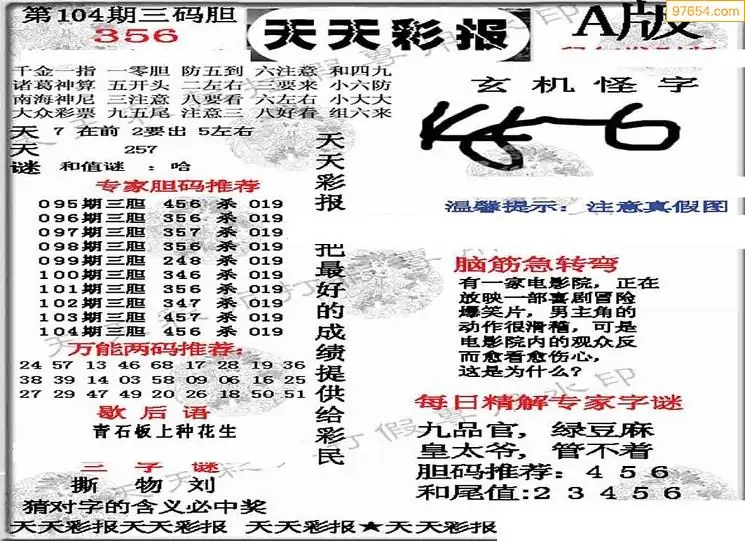 第104期三码胆
356
天天彩报
A版
97654.com
千金一指 一零胆 防五到 六注意 和四九
诸葛神算 五开头 二左右 三要来 小六防
南海神尼 三注意 八要看 六左右 小大大
大众彩票 九五尾 注意三 八好看 组六来
天 7 在前 2要出 5左右
天 257
谜 和值谜 : 哈
专家胆码推荐
095期三胆 456 杀 019
096期三胆 356 杀 019
097期三胆 357 杀 019
098期三胆 356 杀 019
099期三胆 248 杀 019
100期三胆 346 杀 019
101期三胆 356 杀 019
102期三胆 347 杀 019
103期三胆 457 杀 019
104期三胆 456 杀 019
万能两码推荐:
24 57 13 46 68 17 28 19 36
38 39 14 03 58 09 06 16 25
27 29 47 49 20 26 18 50 51
歇后语
青石板上种花生
三字谜
撕 物 刘
猜对字的含义必中奖
天天彩报
把最好的成绩提供给彩民
玄机怪字
温馨提示: 注意真假图
脑筋急转弯
有一家电影院,正在
放映一部喜剧冒险
爆笑片,男主角的
动作很滑稽,可是
电影院内的观众反
而愈看愈伤心,
这是为什么?
每日精解专家字谜
九品官,绿豆麻
皇太爷,管不着
胆码推荐: 456
和尾值:23456
天天彩报天天彩报 天天彩报★天天彩报